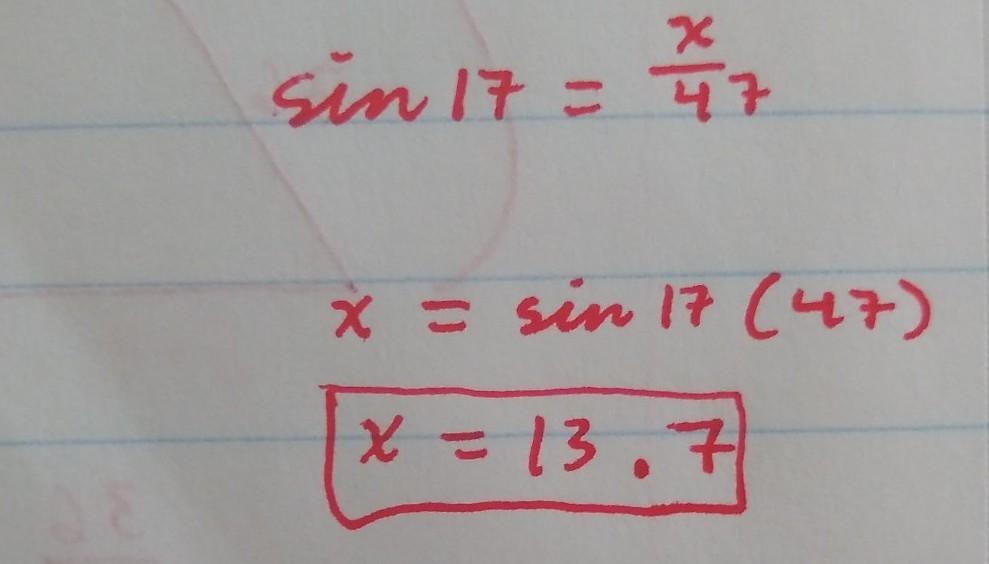 sin 17 = x/47
x = sin 17 (47)
x = 13.7